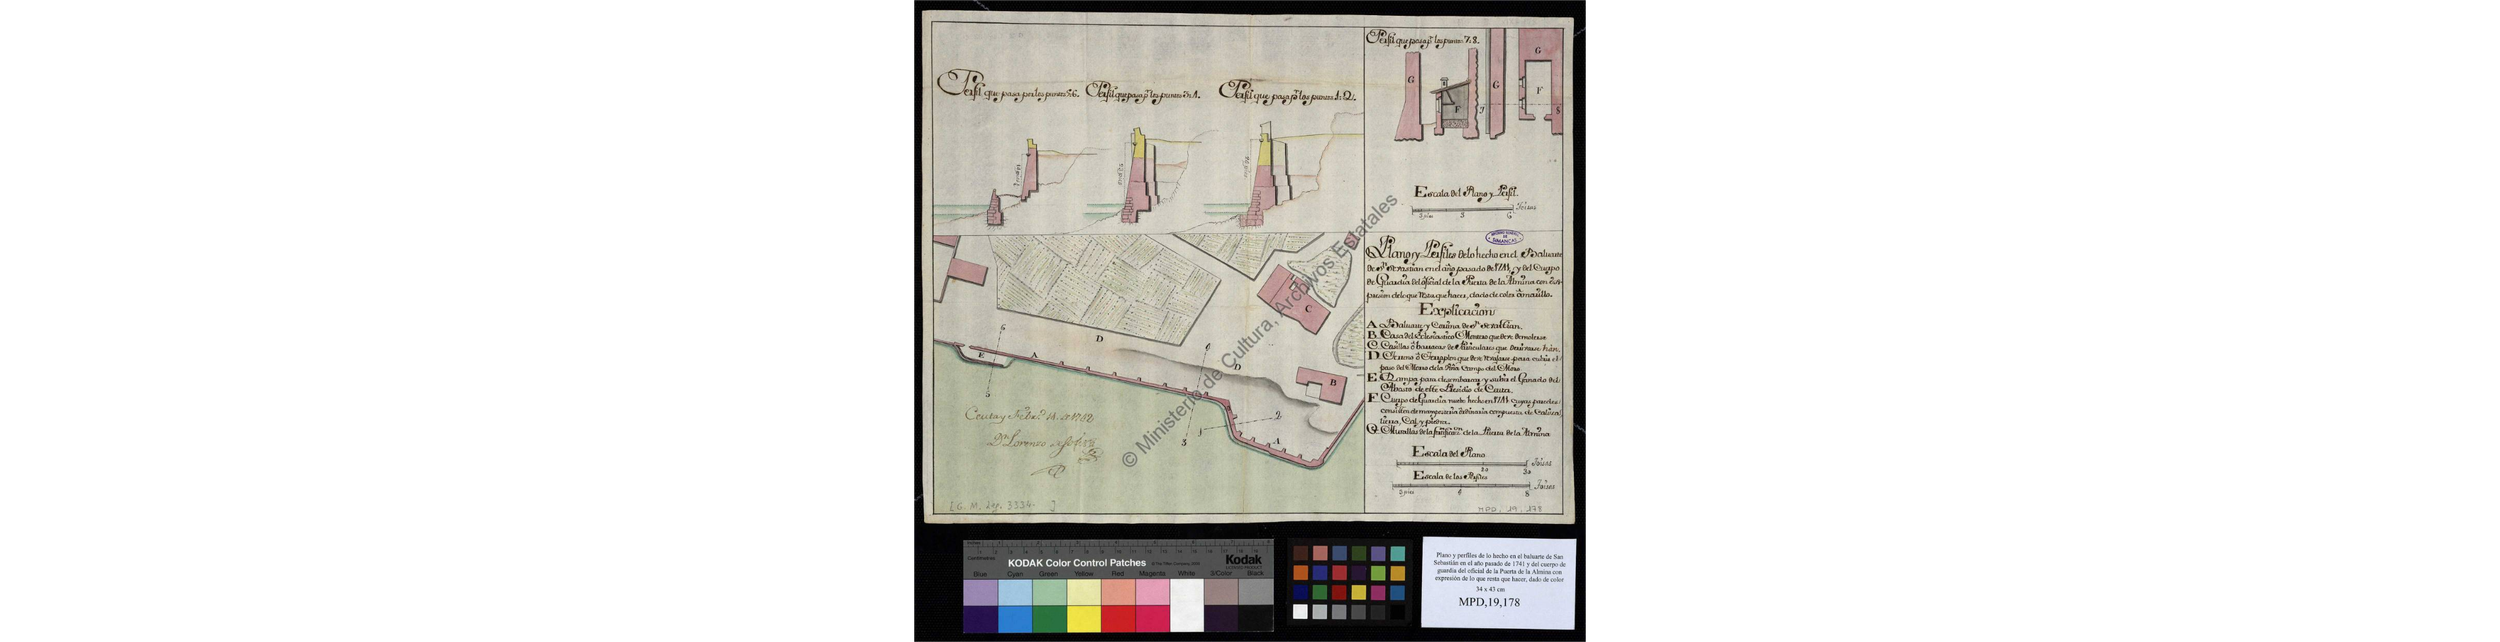 Perfil que pasa por los puntos 5:6.
Perfil que pasa pr. los puntos 3:4.
Perfil que pasa pr. los puntos 1:2.
Perfil que pasa pr. los puntos 7:8.
G
G
G
F
F
7
8
Escala del Plano y Perfil.
3 pies 3 6 Toisas
ARCHIVO GENERAL DE SIMANCAS
Plano y Perfiles de lo hecho en el Baluarte
de Sn. Sevastian en el año pasado de 1741, y del Cuerpo
de Guardia del oficial de la Puerta de la Almina con es-
presion de lo que resta que hacer, dado de color amarillo.
Explicacion
A Baluarte y Cortina de Sn. Sevastian.
B Casa del Eclesiastico Moreno que deve demolerse
C Casillas ô barracas de Particulares que
D Terreno ô Terraplen que deve para cubrir el
paso del de la Campo del Moro
E Rampa para desembarcar y subir el Ganado del
Abasto de este Presidio de Ceuta.
F Cuerpo de Guardia nuebo hecho en 1741 cuyas paredes
consisten de mamposteria ordinaria compuesta de
tierra, Cal, y piedra.
G Murallas de la fortificacion de la Puerta de la Almina
Escala del Plano
20 30 Toisas
Escala de los Perfiles
3 pies 6 8 Toises
C
D
D
B
E A
A
6
5
4
3
2
1
Ceuta y Febro. 14. de 1742.
Dn. Lorenzo de Solis
[G. M. Leg. 3334. ]
MPD. 19. 178
© Ministerio de Cultura, Archivos Estatales
KODAK Color Control Patches
Kodak
Blue Cyan Green Yellow Red Magenta White 3/Color Black
Plano y perfiles de lo hecho en el baluarte de San
Sebastián en el año pasado de 1741 y del cuerpo de
guardia del oficial de la Puerta de la Almina con
expresión de lo que resta que hacer, dado de color
34 x 43 cm
MPD,19,178